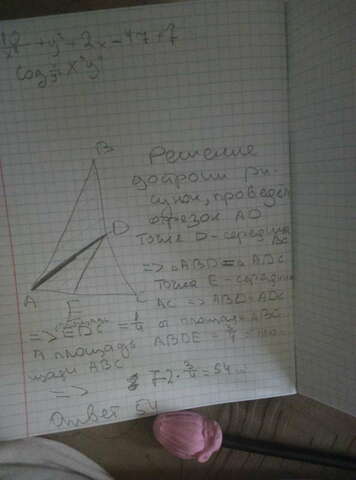 + y² + 2x - 47 + 7
x²y²
B
Решение
дострои ри-
сунок, проведем
отрезок AD
D
Точка D - середина
BC
=> △ABD = △ADC
A
E
C
Точка E - середина
AC => ABD = ADC
=> EDC = 1/4 от площади ABC
А площадь ABDE = 3/4
щади ABC
=> 72 · 3/4 = 54
Ответ 54